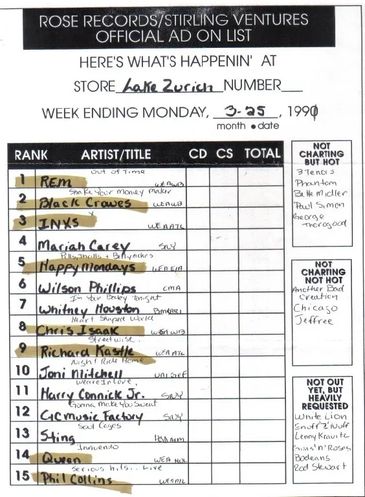 ROSE RECORDS/STIRLING VENTURES
OFFICIAL AD ON LIST
HERE'S WHAT'S HAPPENIN' AT
STORE Lake Zurich NUMBER
WEEK ENDING MONDAY, 3-25, 1991
month • date
RANK ARTIST/TITLE CD CS TOTAL
Out of Time
1 REM
Shake Your Money Maker
2 Black Crowes
X
3 INXS
4 Mariah Carey
Pills, Thrills + Bellyaches
5 Happy Mondays
6 Wilson Phillips CMA
I'm Your Baby Tonight
7 Whitney Houston
Heart Shaped World
8 Chris Isaak
Streetwise
9 Richard Kastle
Night Ride Home
10 Joni Mitchell
We are In Love
11 Harry Connick Jr.
Gonna Make You Sweat
12 C+C Music Factory
Soul Cages
13 Sting
Innuendo
14 Queen
Serious hits.. Live
15 Phil Collins
NOT
CHARTING
BUT HOT
3 Tenors
Phantom
Bette Midler
Paul Simon
George
Thorogood
NOT
CHARTING
NOT HOT
Another Bad
Creation
Chicago
Jeffree
NOT OUT
YET, BUT
HEAVILY
REQUESTED
White Lion
Enuff Z'Nuff
Lenny Kravitz
Guns 'n' Roses
Bodeans
Rod Stewart